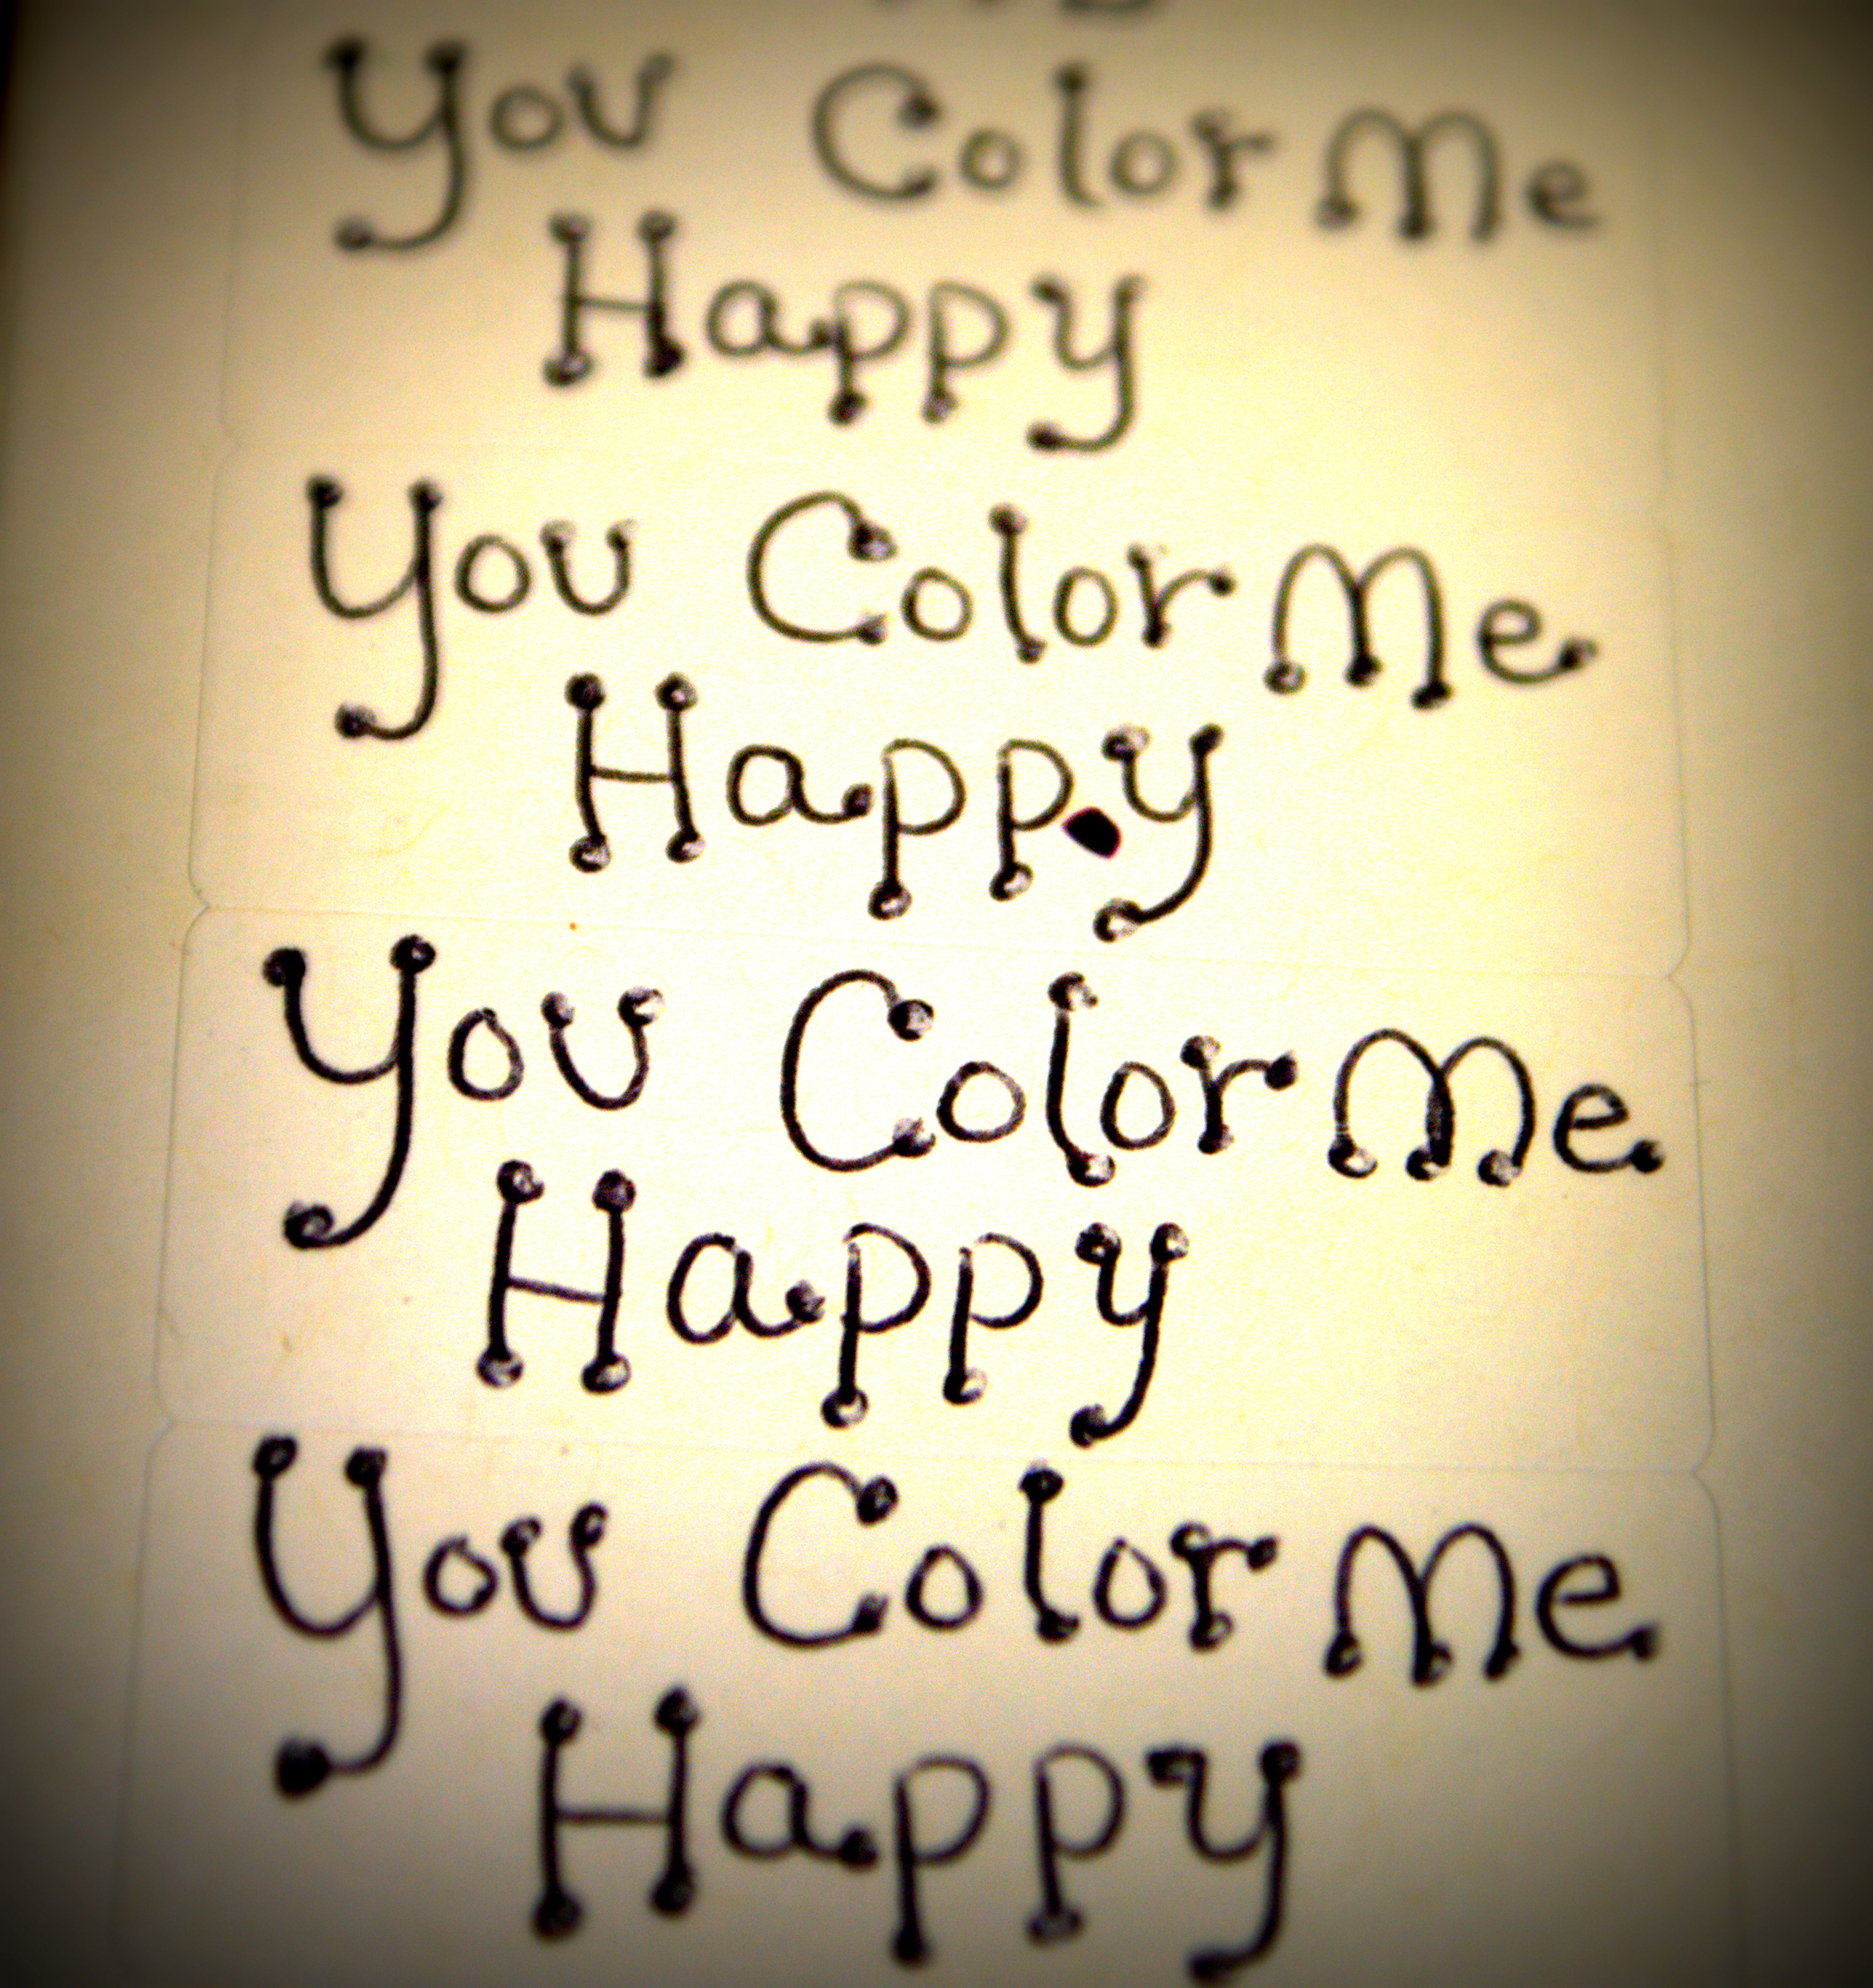 You Color Me
Happy
You Color Me
Happy
You Color Me
Happy
You Color Me
Happy